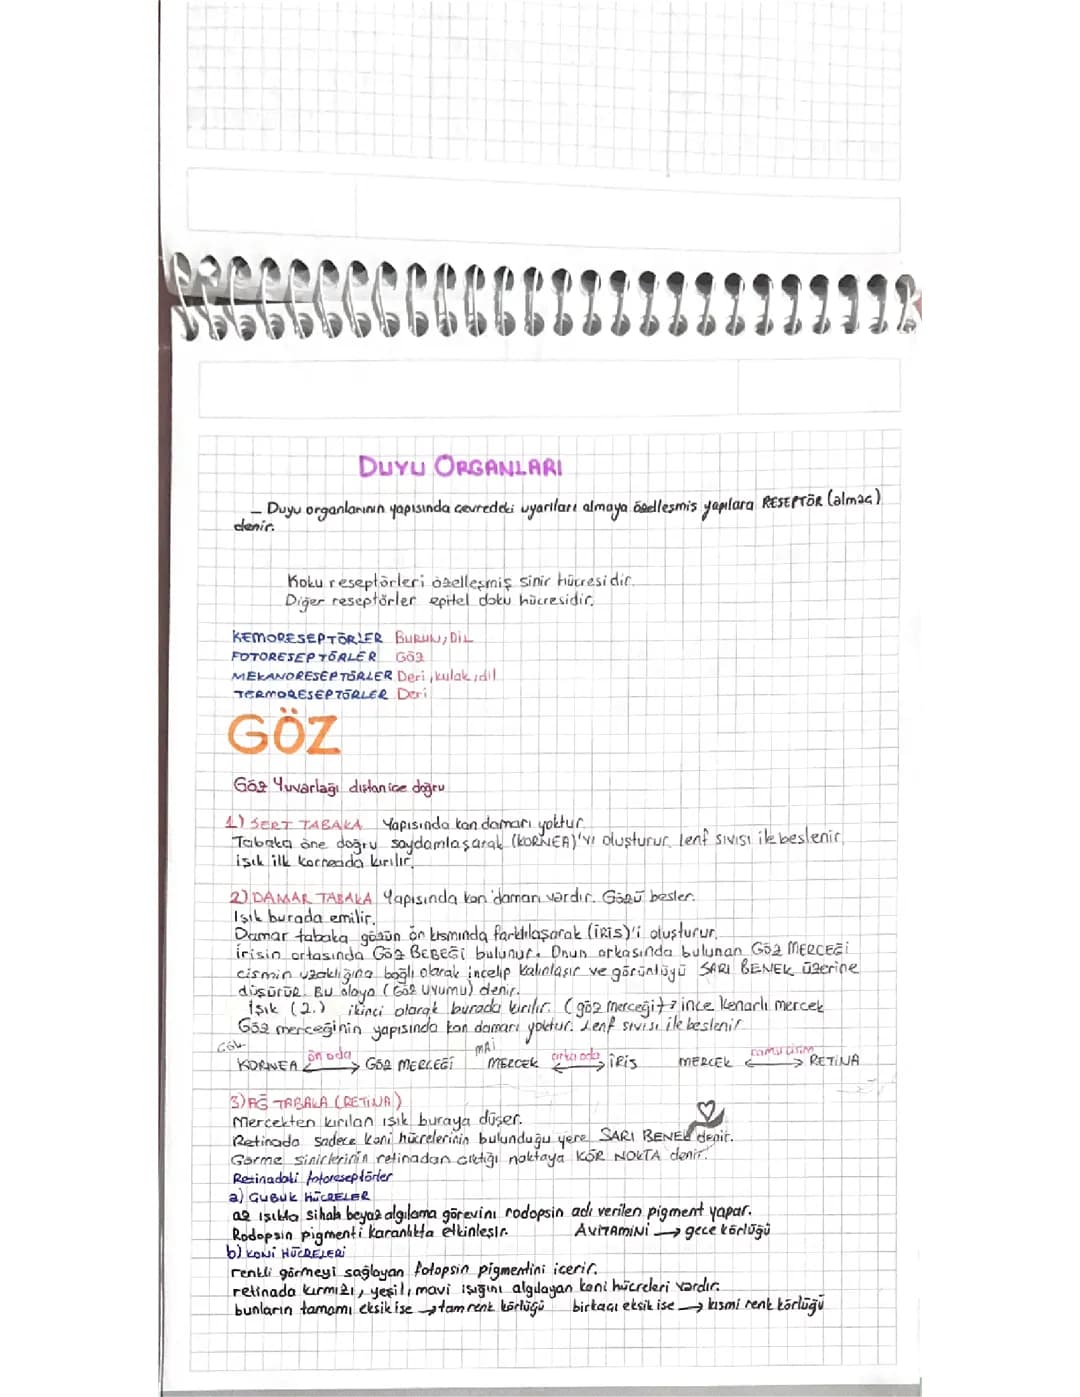 DUYU ORGANLARI
_ Duyu organlarının yapısında çevredeki uyarıları almaya özelleşmiş yapılara RESEPTÖR (almaç)
denir.
Koku reseptörleri özelleşmiş sinir hücresidir.
Diğer reseptörler epitel doku hücresidir.
KEMORESEPTÖRLER BURUN, DİL
FOTORESEPTÖRLER Göz
MEKANORESEPTÖRLER Deri, kulak, dil
TERMORESEPTÖRLER Deri
GÖZ
Göz Yuvarlağı dıştan içe doğru
1) SERT TABAKA Yapısında kan damarı yoktur.
Tabaka öne doğru saydamlaşarak (KORNEA)'yı oluşturur. lenf sıvısı ile beslenir.
ışık ilk korneada kırılır.
2) DAMAR TABAKA Yapısında kan damarı vardır. Gözü besler.
Işık burada emilir.
Damar tabaka gözün ön kısmında farklılaşarak (iRiS)'i oluşturur.
irisin ortasında GÖZ BEBEĞİ bulunur. Onun arkasında bulunan GÖZ MERCEĞİ
cismin uzaklığına bağlı olarak incelip kalınlaşır ve görüntüyü SARI BENEK üzerine
düşürür. Bu olaya (GÖZ UYUMU) denir.
Işık (2.) ikinci olarak burada kırılır. (göz merceği → ince kenarlı mercek
Göz merceğinin yapısında kan damarı yoktur. Lenf sıvısı ile beslenir
KORNEA ön oda GÖZ MERCEĞİ MERCEK arka oda iRiS MERCEK camsı cisim RETİNA
3) AĞ TABAKA (RETİNA)
Mercekten kırılan ışık buraya düşer.
Retinada sadece koni hücrelerinin bulunduğu yere SARI BENEK denir.
Görme sinirlerinin retinadan çıktığı noktaya KÖR NOKTA denir.
Retinadaki fotoreseptörler
a) ÇUBUK HÜCRELER
az ışıkta siyah beyaz algılama görevini rodopsin adı verilen pigment yapar.
Rodopsin pigmenti karanlıkta etkinleşir. A VİTAMİNİ → gece körlüğü
b) KONİ HÜCRELERİ
renkli görmeyi sağlayan fotopsin pigmentini içerir.
retinada kırmızı, yeşil, mavi ışığını algılayan koni hücreleri vardır.
bunların tamamı eksik ise → tam renk körlüğü birkaçı eksik ise → kısmi renk körlüğü